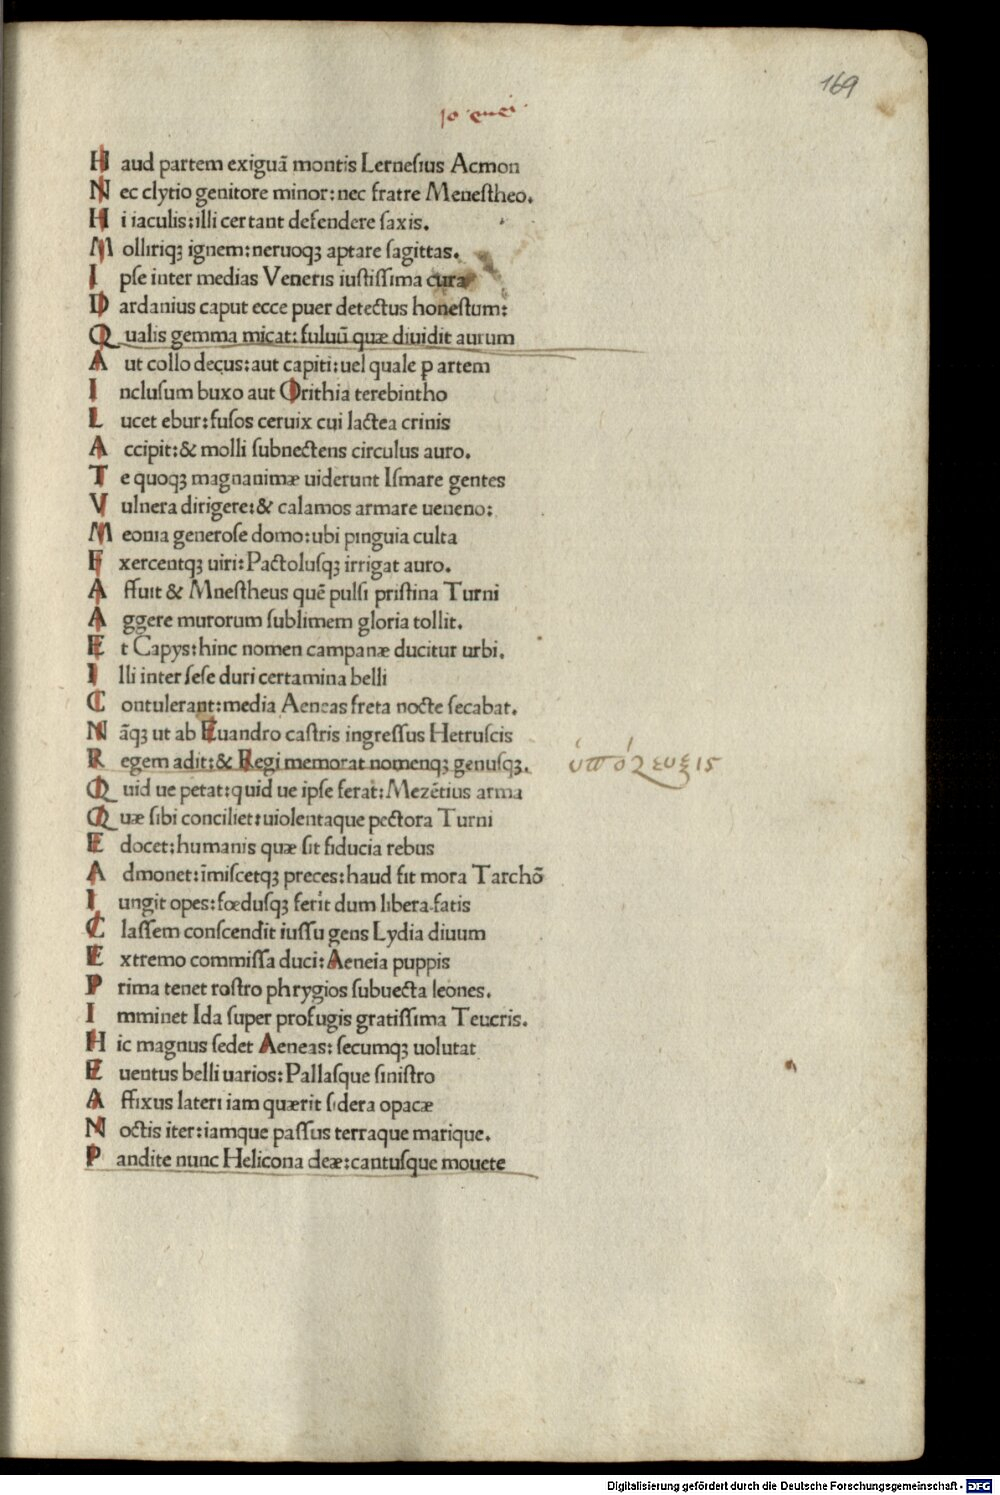 169
10 enei
Haud partem exiguā montis Lernesius Acmon
Nec clytio genitore minor: nec fratre Menestheo.
Hi iaculis: illi certant defendere saxis.
Molliriqꝫ ignem: neruoqꝫ aptare sagittas.
Ipse inter medias Veneris iustissima cura
Dardanius caput ecce puer detectus honestum:
Qualis gemma micat: fuluū quæ diuidit aurum
Aut collo decus: aut capiti: uel quale ꝑ artem
Inclusum buxo aut Orithia terebintho
Lucet ebur: fusos ceruix cui lactea crinis
Accipit: & molli subnectens circulus auro.
Te quoqꝫ magnanimæ uiderunt Ismare gentes
Vulnera dirigere: & calamos armare ueneno:
Meonia generose domo: ubi pinguia culta
Exercentqꝫ uiri: Pactolusqꝫ irrigat auro.
Affuit & Mnestheus quē pulsi pristina Turni
Aggere murorum sublimem gloria tollit.
Et Capys: hinc nomen campanæ ducitur urbi.
Illi inter sese duri certamina belli
Contulerant: media Aeneas freta nocte secabat.
Nāqꝫ ut ab Euandro castris ingressus Hetruscis
Regem adit: & Regi memorat nomenqꝫ genusqꝫ.
ὑπόζευξις
Quid ue petat: quid ue ipse ferat: Mezētius arma
Quæ sibi conciliet: uiolentaque pectora Turni
Edocet: humanis quæ sit fiducia rebus
Admonet: īmiscetqꝫ preces: haud fit mora Tarchō
Iungit opes: fœdusqꝫ ferit dum libera fatis
Classem conscendit iussu gens Lydia diuum
Extremo commissa duci: Aeneia puppis
Prima tenet rostro phrygios subuecta leones.
Imminet Ida super profugis gratissima Teucris.
Hic magnus sedet Aeneas: secumqꝫ uolutat
Euentus belli uarios: Pallasque sinistro
Affixus lateri iam quærit sidera opacæ
Noctis iter: iamque passus terraque marique.
Pandite nunc Helicona deæ: cantusque mouete
Digitalisierung gefördert durch die Deutsche Forschungsgemeinschaft - DFG